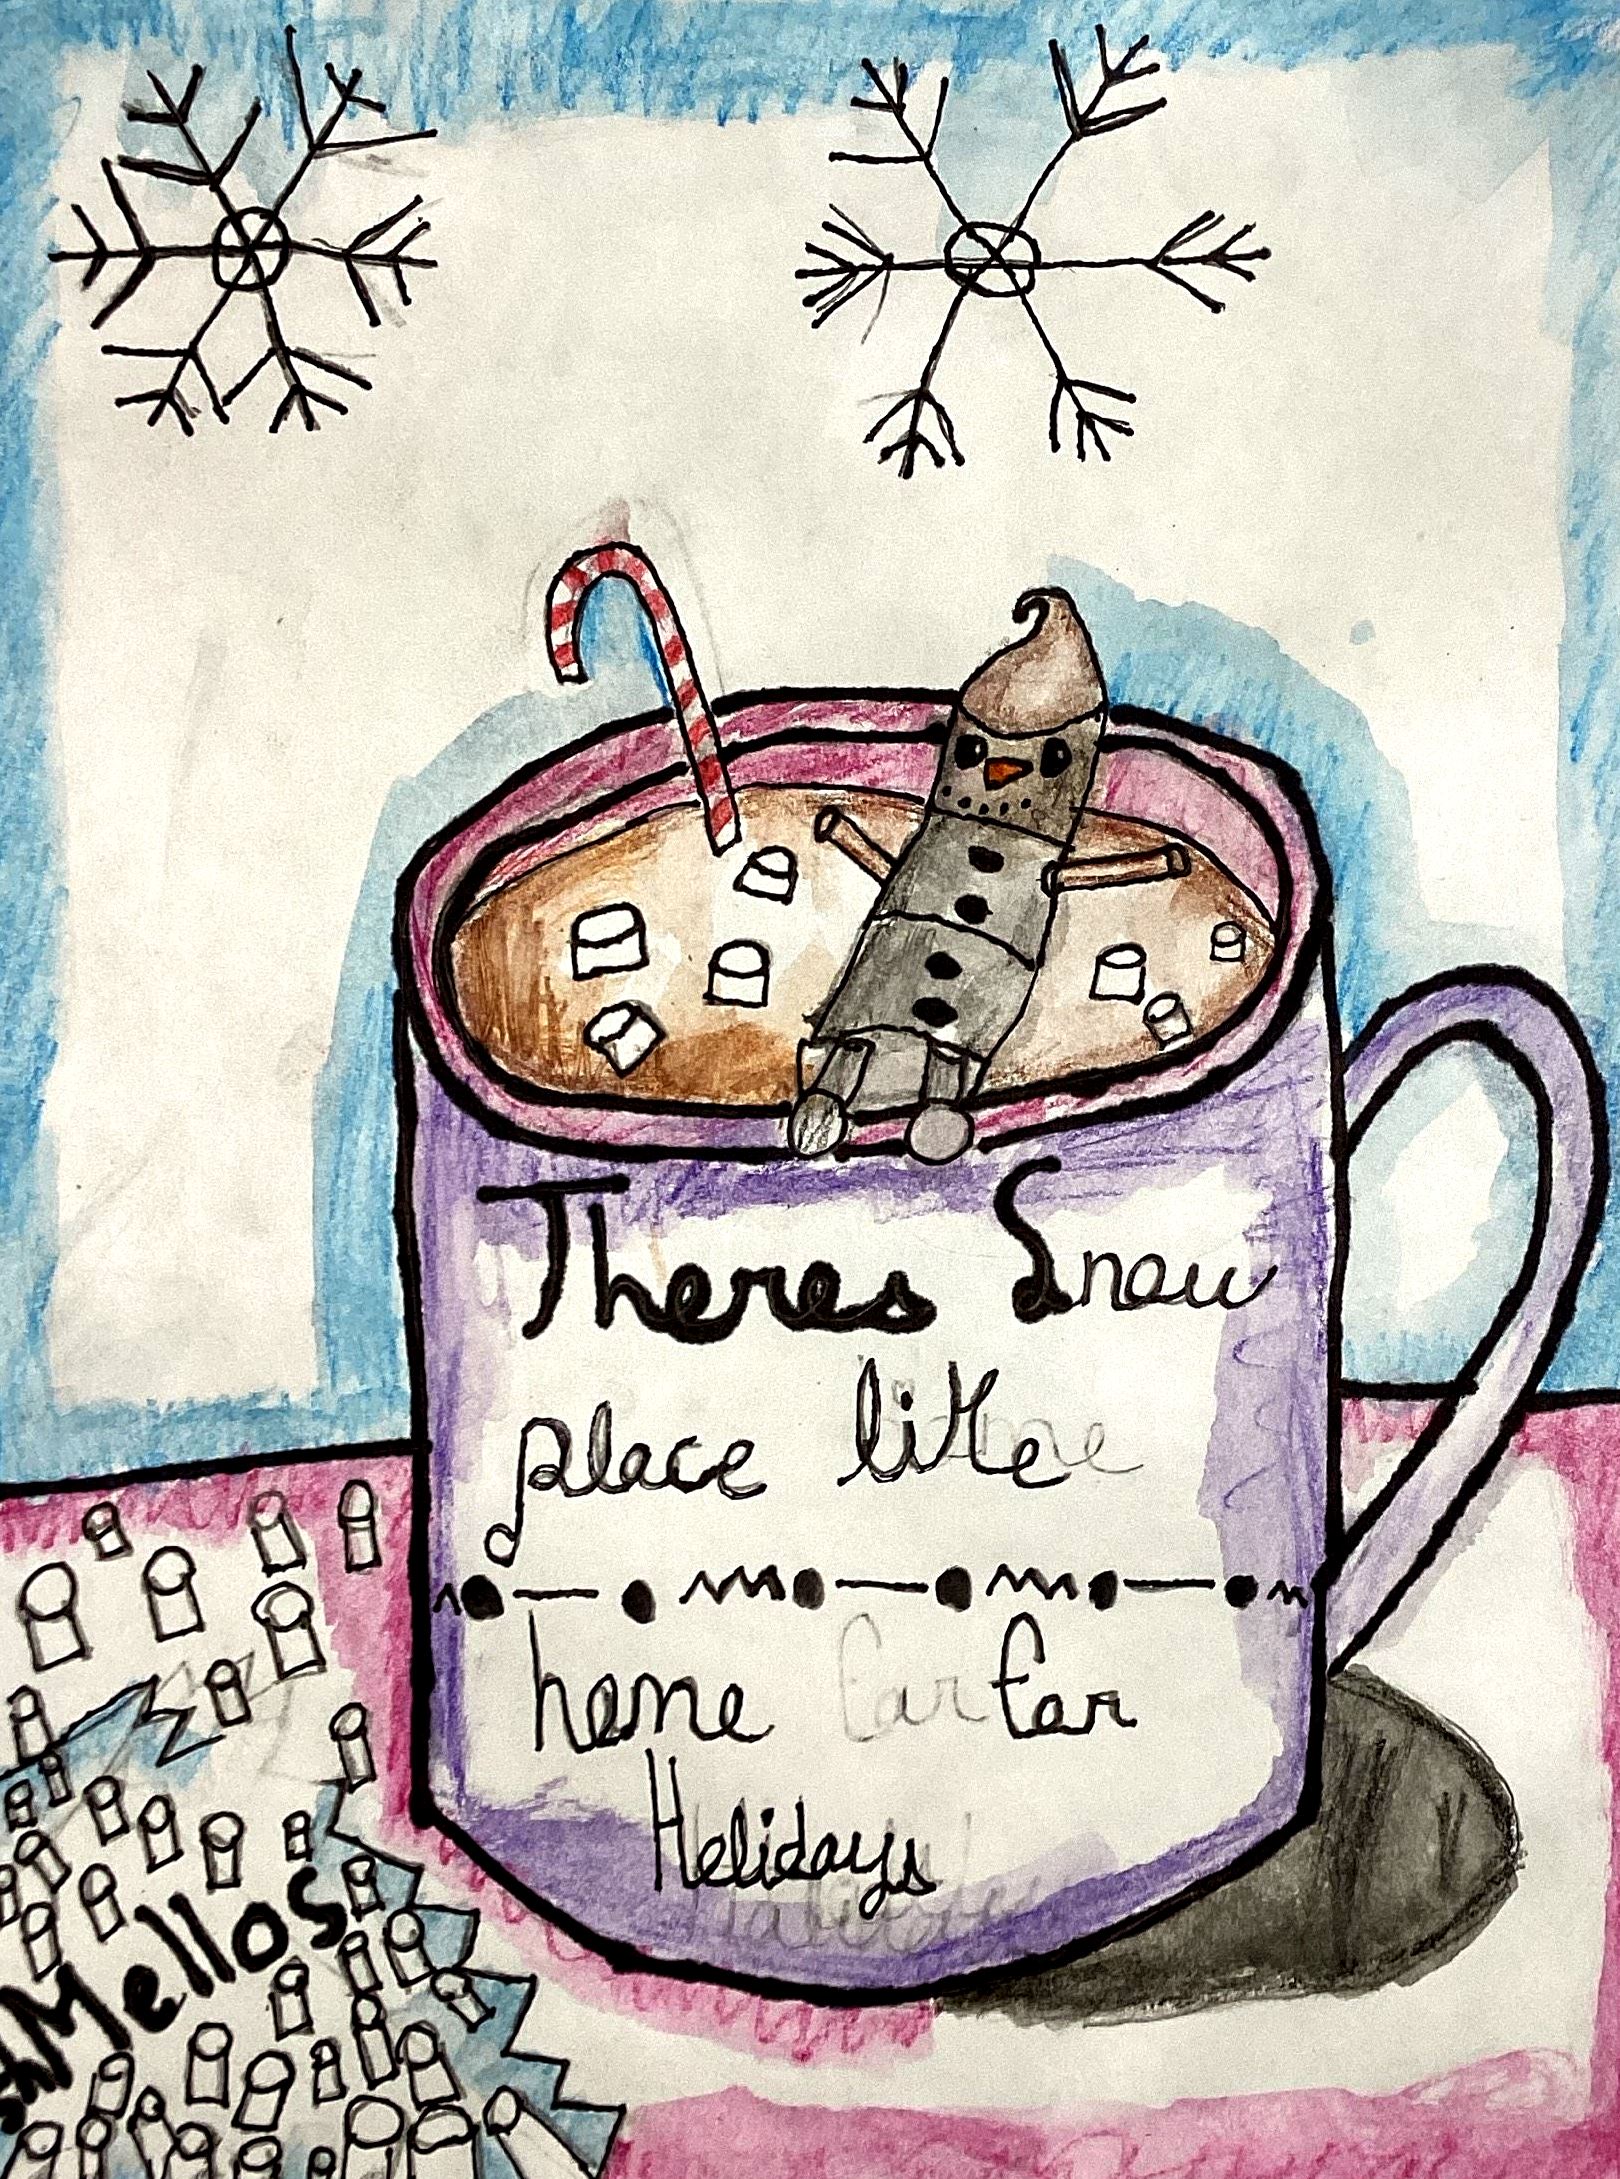 Theres Snow
place like
home for
Holidays
Mellos